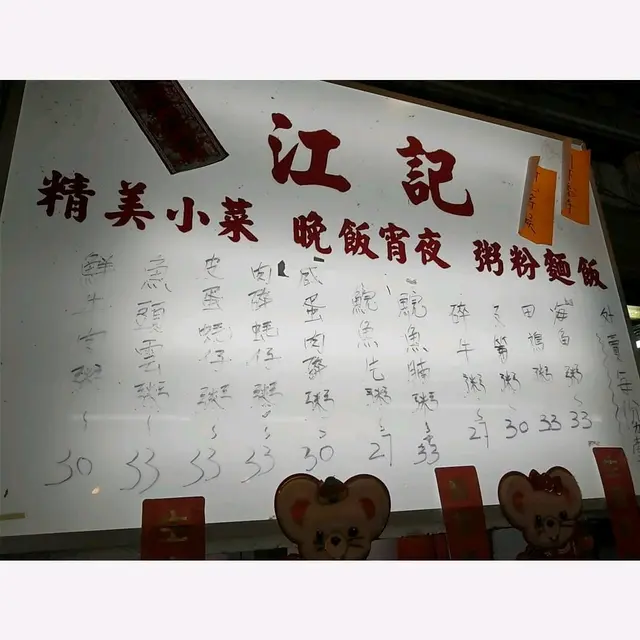 江記
精美小菜 晚飯宵夜 粥粉麵飯
鮮牛肉粥~30
魚頭雲粥~33
皮蛋蠔仔粥~33
肉碎蠔仔粥~33
咸蛋肉碎粥~30
鯇魚片粥~27
鯇魚腩粥~33
碎牛粥~27
粥~30
田雞粥33
粥~33
外賣